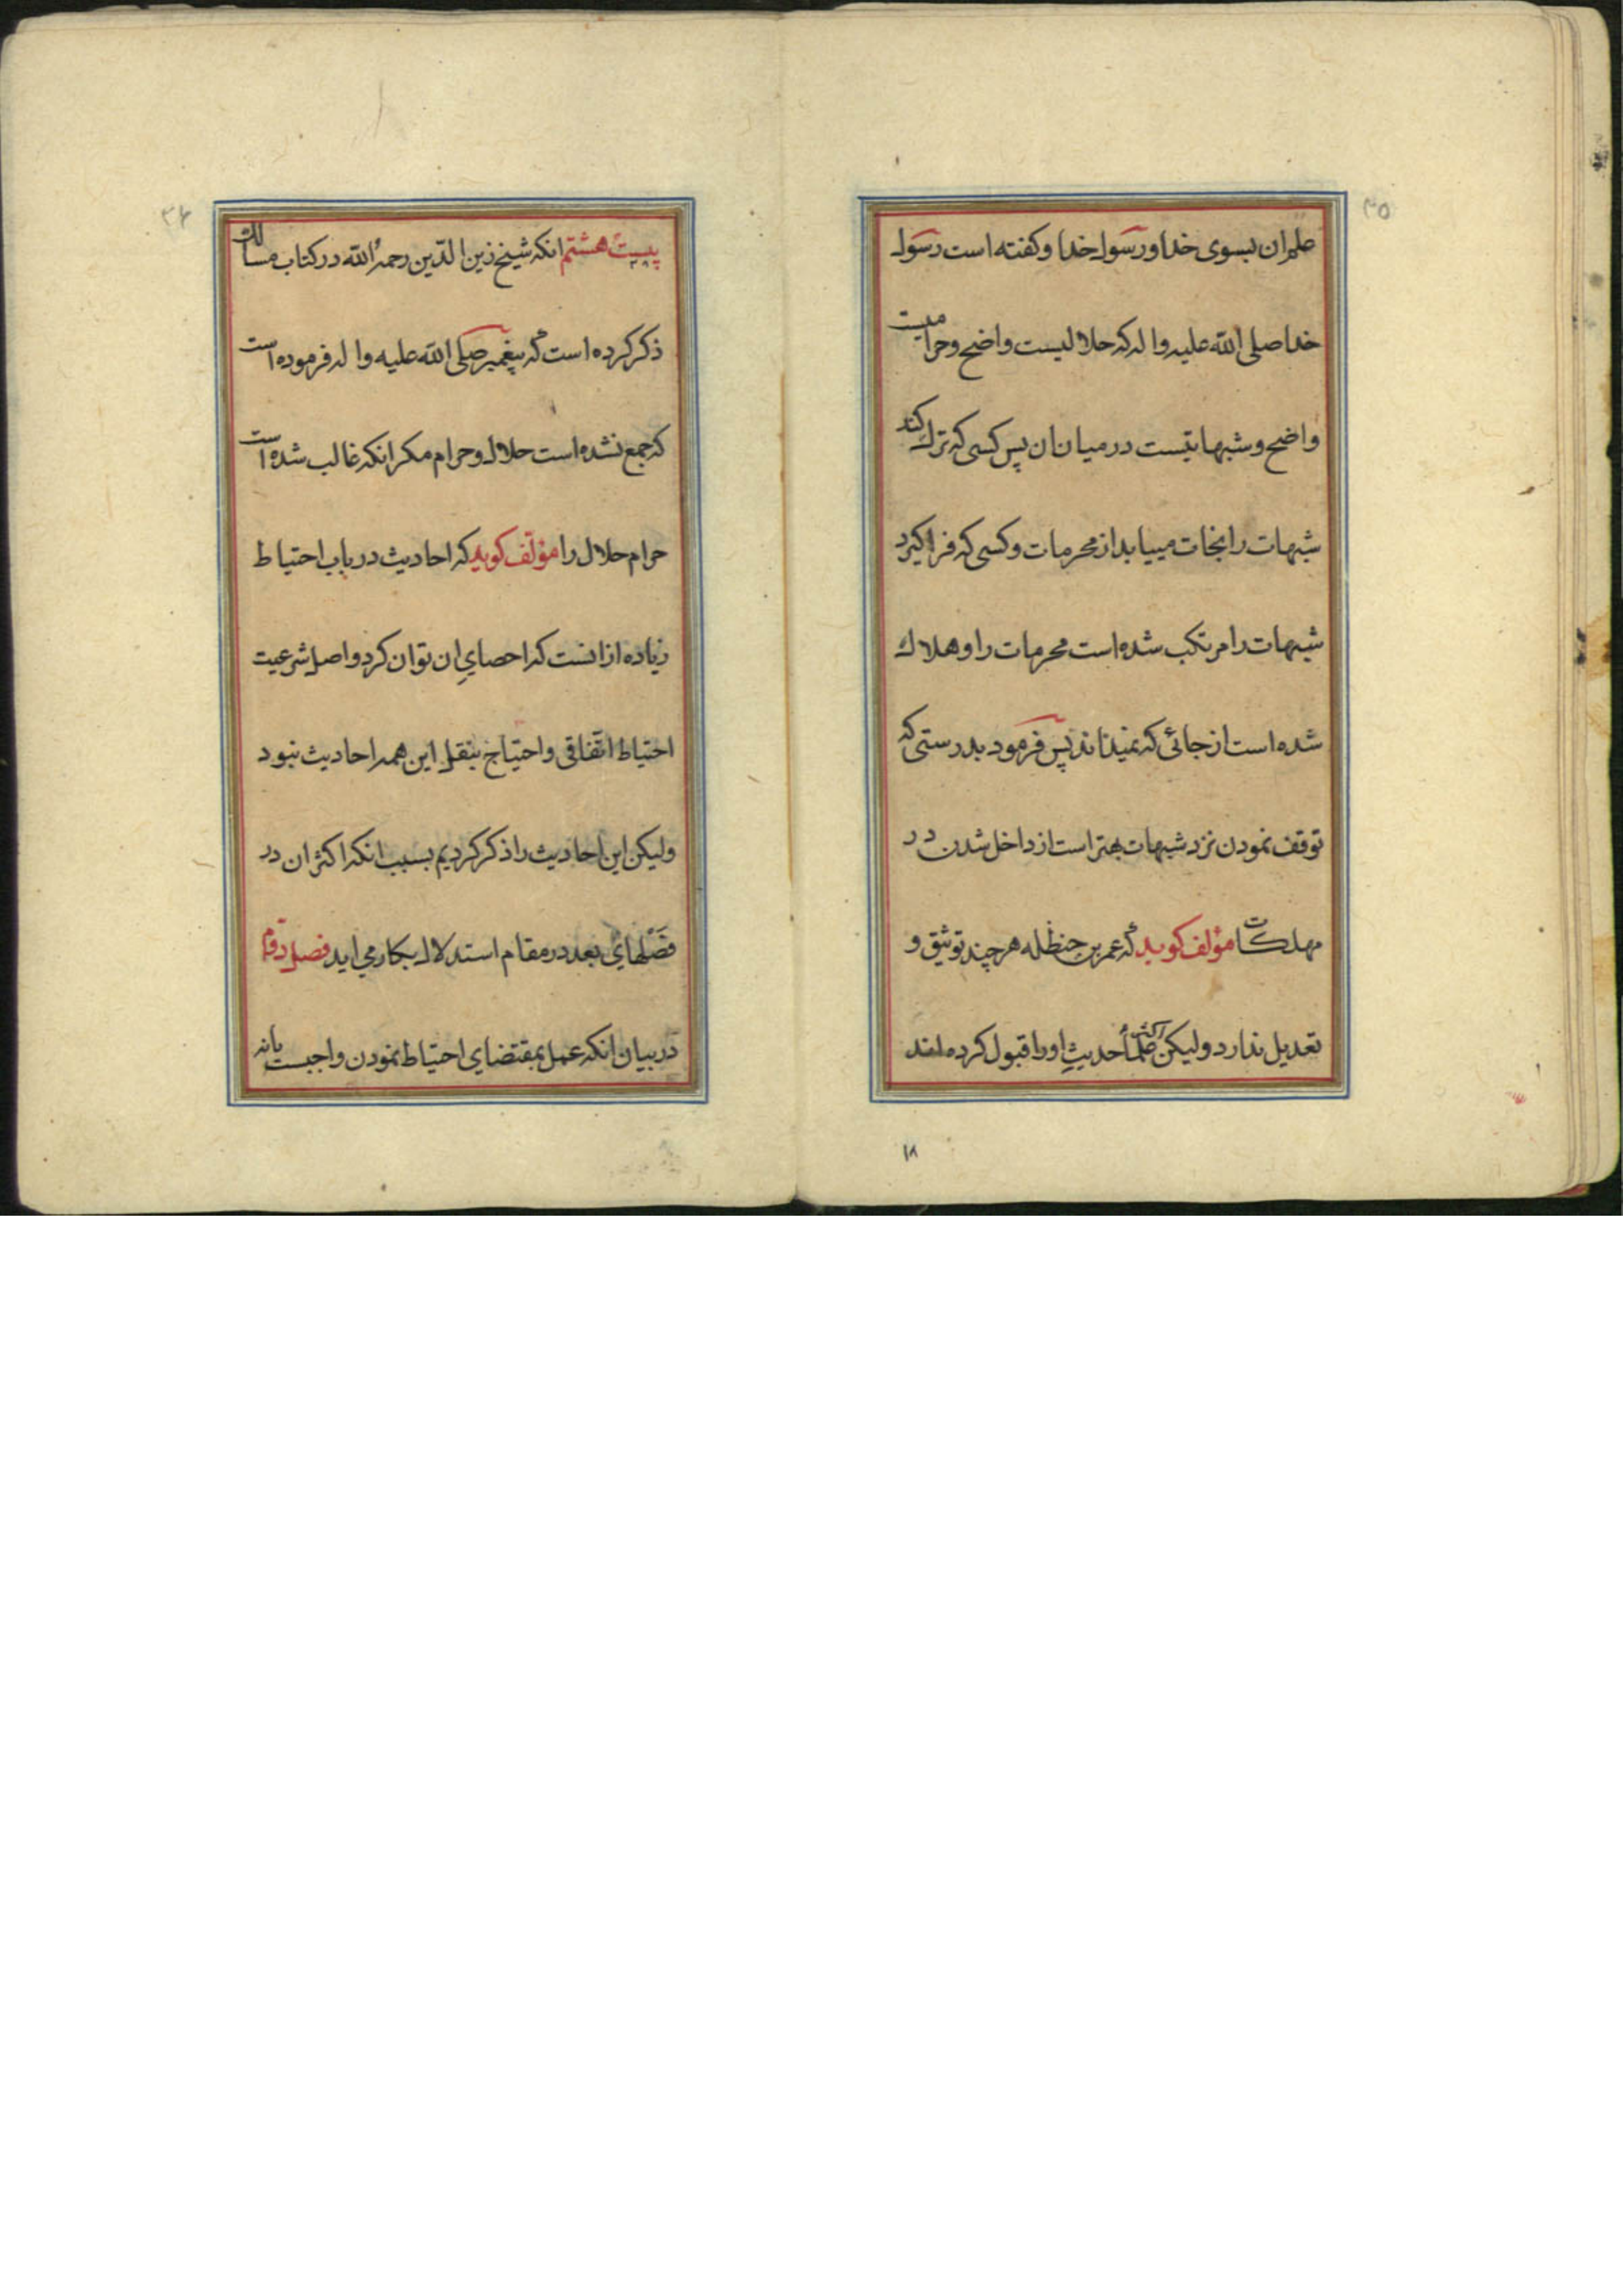 ۳۵
علم ان بسوی خدا و رسول خدا و کفته است رسول
خدا صلی الله علیه واله که حلالیست واضح و حرامیست
واضح و شبهاتیست در میان ان پس کسی که ترک کند
شبهات را نجات مییابد از محرمات و کسی که فرا کیرد
شبهات را مرتکب شده است محرمات را و هلاک
شده است از جائی که نمیداند پس فرمود بدرستی که
توقف نمودن نزد شبهات بهتر است از داخل شدن در
مهلکات مؤلف کوید که عمر بن حنظله هر چند توثیق و
تعدیل ندارد ولیکن اکثر علما حدیث او را قبول کرده اند
۱۸
۳۶
بیست هشتم انکه شیخ زین الدین رحمه الله در کتاب مسالک
ذکر کرده است که پیغمبر صلی الله علیه واله فرموده است
که جمع نشده است حلال و حرام مکر انکه غالب شده است
حرام حلال را مؤلف کوید که احادیث در باب احتیاط
زیاده از انست که احصای ان توان کرد و اصل شرعیت
احتیاط اتفاقی و احتیاج بنقل این همه احادیث نبود
ولیکن این احادیث را ذکر کردیم بسبب انکه اکثر ان در
فصلهای بعد در مقام استدلال بکار می اید فصل دوم
در بیان انکه عمل بمقتضای احتیاط نمودن واجبست یا نه